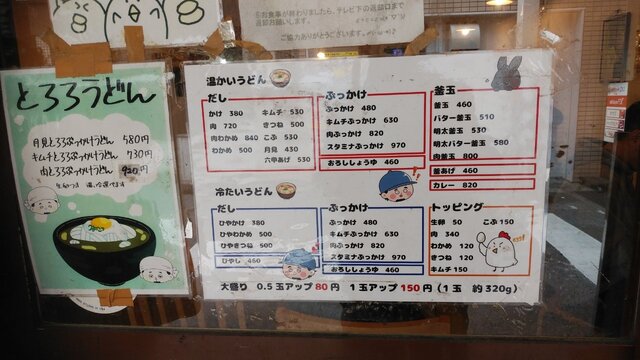 お食事が終わりましたら、テレビ下の返却口まで
ご協力ありがとうございます。
とろろうどん
月見とろろぶっかけうどん 580円
キムチとろろぶっかけうどん 730円
肉とろろぶっかけうどん 920円
温かいうどん
だし
かけ 380 キムチ 530
肉 720 きつね 500
肉わかめ 840 こぶ 530
わかめ 500 月見 430
六甲あげ 530
ぶっかけ
ぶっかけ 480
キムチぶっかけ 630
肉ぶっかけ 820
スタミナぶっかけ 970
おろししょうゆ 460
釜玉
釜玉 460
バター釜玉 510
明太釜玉 530
明太バター釜玉 580
肉釜玉 800
釜あげ 460
カレー 820
冷たいうどん
だし
ひやかけ 380
ひやわかめ 500
ひやきつね 500
ひやし 460
ぶっかけ
ぶっかけ 480
キムチぶっかけ 630
肉ぶっかけ 820
スタミナぶっかけ 970
おろししょうゆ 460
トッピング
生卵 50 こぶ 150
肉 340
わかめ 120
きつね 120
キムチ 150
大盛り 0.5玉アップ 80円 1玉アップ 150円 (1玉 約320g)